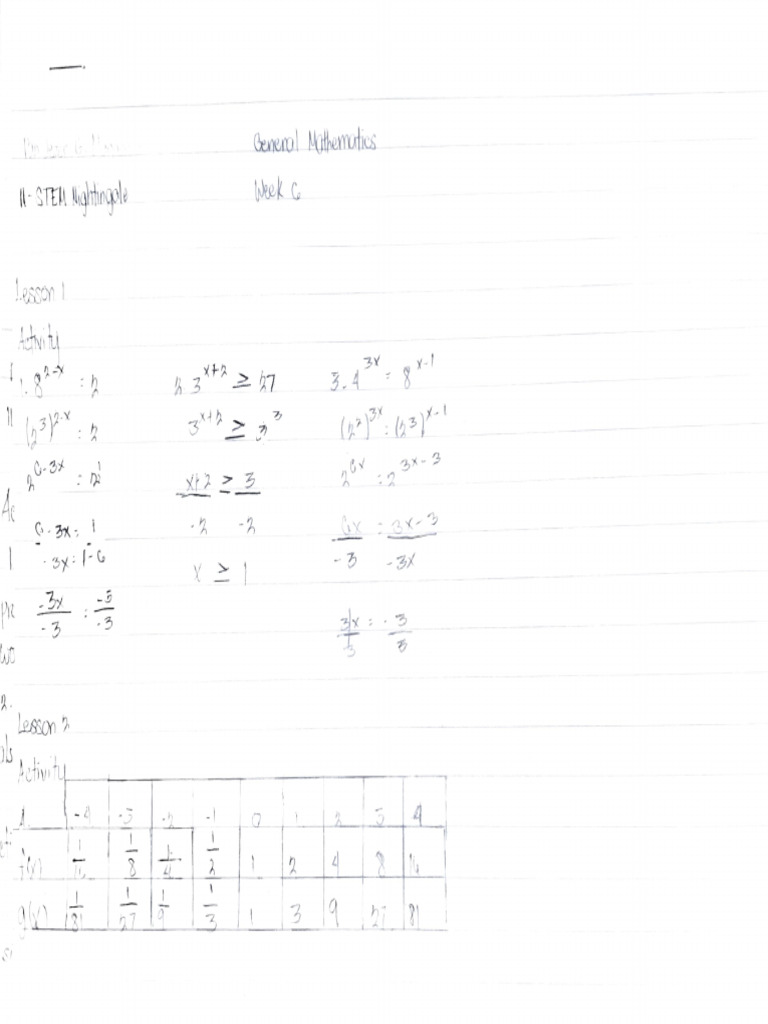 General Mathematics
11- STEM Nightingale
Week 6
Lesson 1
Activity
1. 8^{2-x} = 2
(2^3)^{2-x} = 2
2^{6-3x} = 2^1
6-3x = 1
-3x = 1-6
-3x/-3 = -5/-3
2. 3^{x+2} ≥ 27
3^{x+2} ≥ 3^3
x+2 ≥ 3
-2 -2
x ≥ 1
3. 4^{3x} = 8^{x-1}
(2^2)^{3x} = (2^3)^{x-1}
2^{6x} = 2^{3x-3}
6x = 3x-3
-3 -3x
3x/3 = -3/3
Lesson 2
Activity
-4 -3 -2 -1 0 1 2 3 4
f(x) 1/16 1/8 1/4 1/2 1 2 4 8 16
g(x) 1/81 1/27 1/9 1/3 1 3 9 27 81